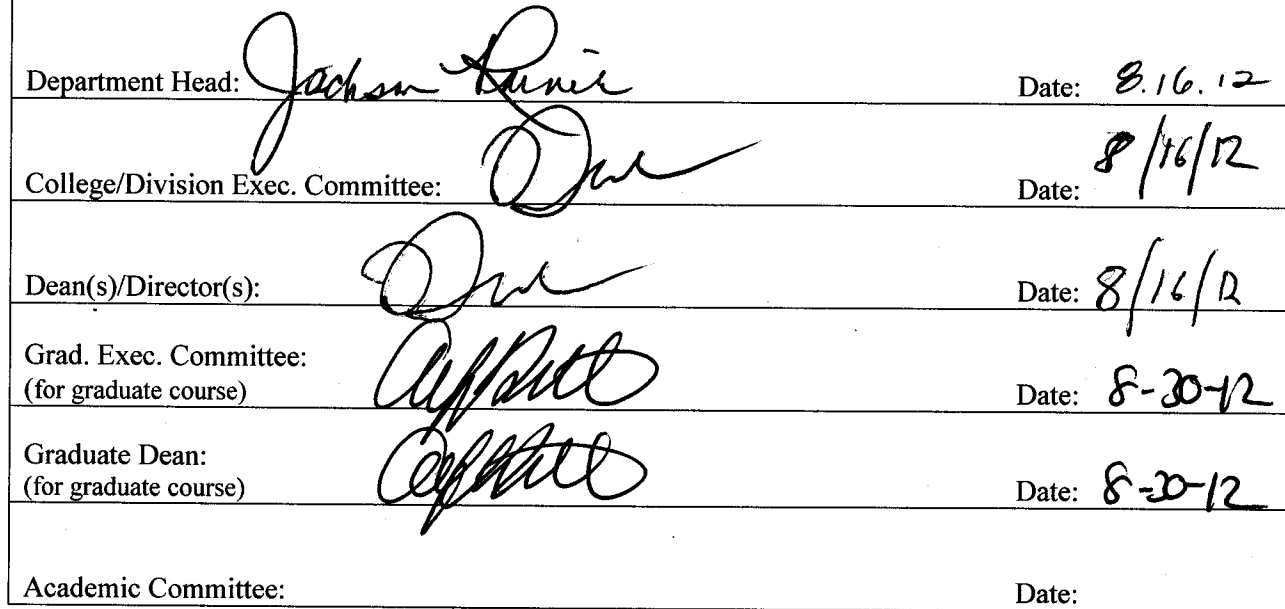 Department Head: Jackson Rainer Date: 8.16.12
College/Division Exec. Committee: Date: 8/16/12
Dean(s)/Director(s): Date: 8/16/12
Grad. Exec. Committee:
(for graduate course) Date: 8-30-12
Graduate Dean:
(for graduate course) Date: 8-30-12
Academic Committee: Date: